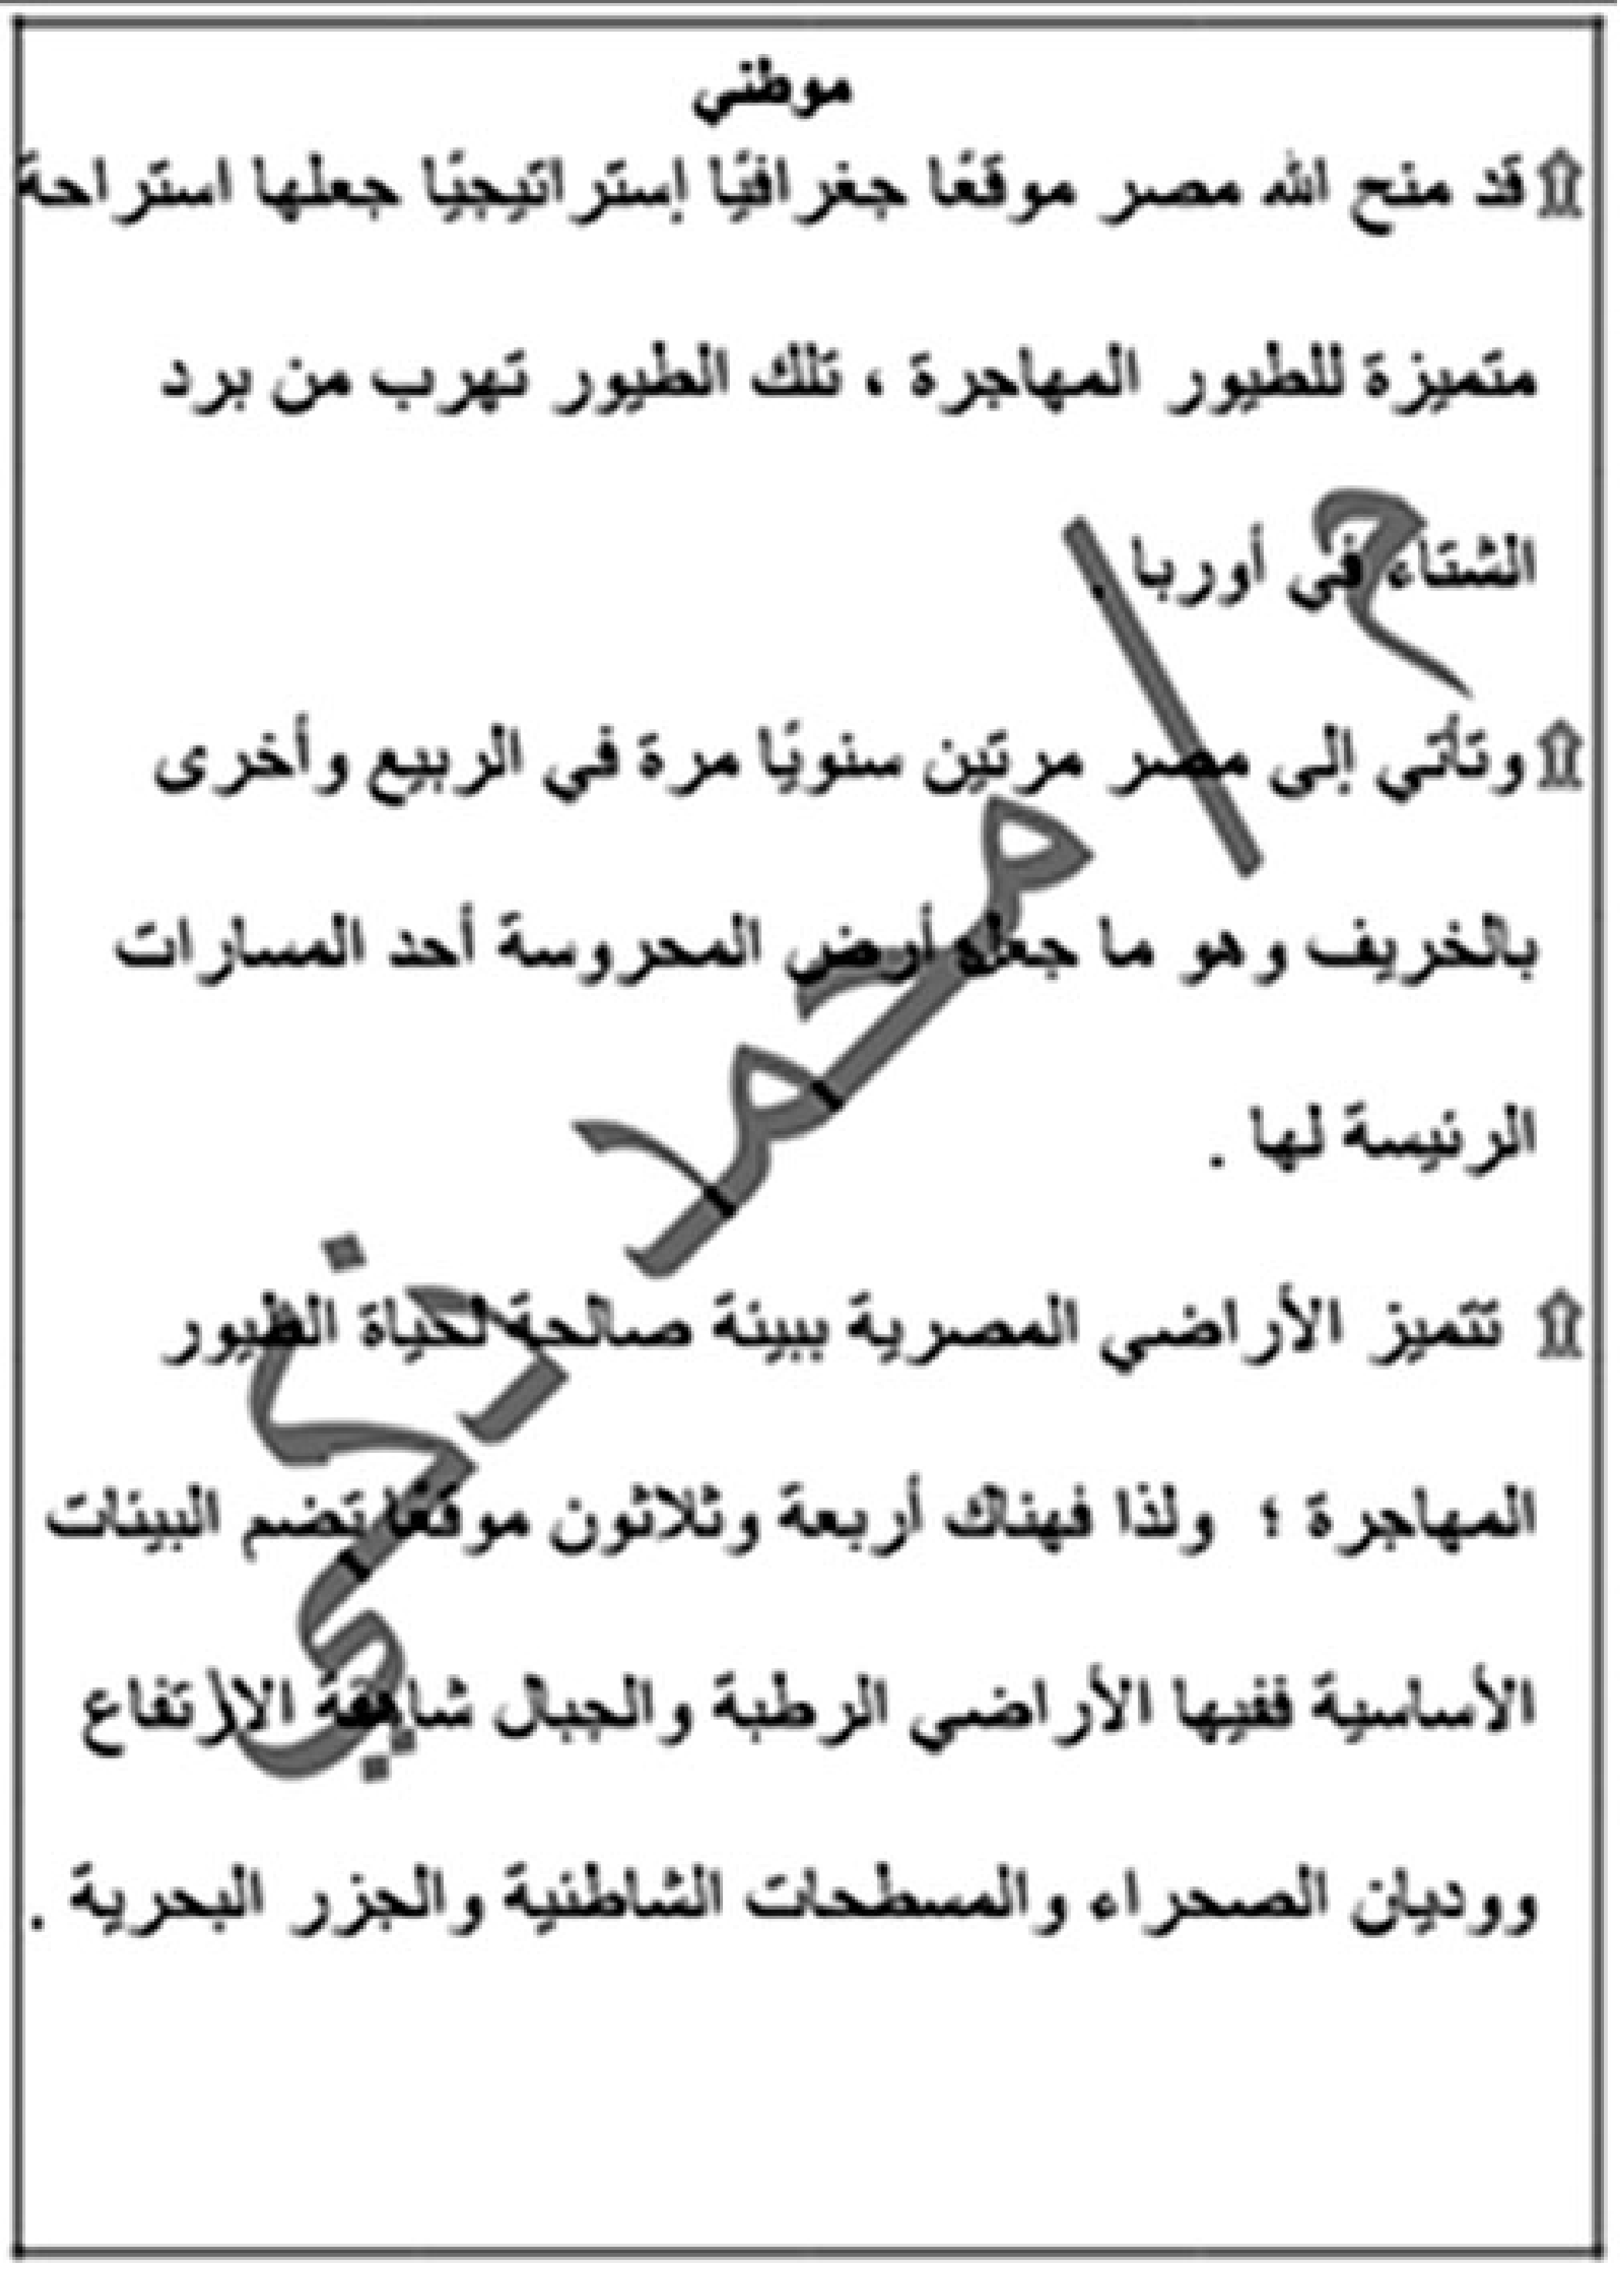 موطني
قد منح الله مصر موقعًا جغرافيًا إستراتيجيًا جعلها استراحة
متميزة للطيور المهاجرة ، تلك الطيور تهرب من برد
الشتاء في أوربا .
وتأتي إلى مصر مرتين سنويًا مرة في الربيع وأخرى
بالخريف وهو ما جعل أرض المحروسة أحد المسارات
الرئيسة لها .
تتميز الأراضي المصرية ببيئة صالحة لحياة الطيور
المهاجرة ؛ ولذا فهناك أربعة وثلاثون موقعًا تضم البيئات
الأساسية ففيها الأراضي الرطبة والجبال شاهقة الارتفاع
ووديان الصحراء والمسطحات الشاطئية والجزر البحرية .